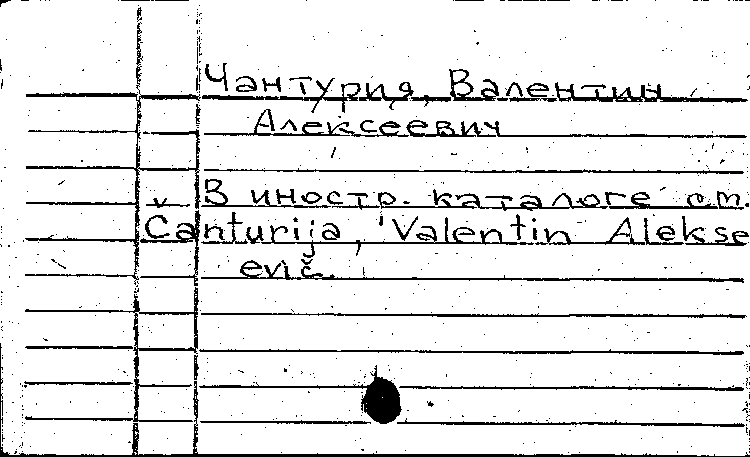 Чантурия, Валентин
Алексеевич
В иностр. каталоге см.
Čanturija, Valentin Alekse
evič.